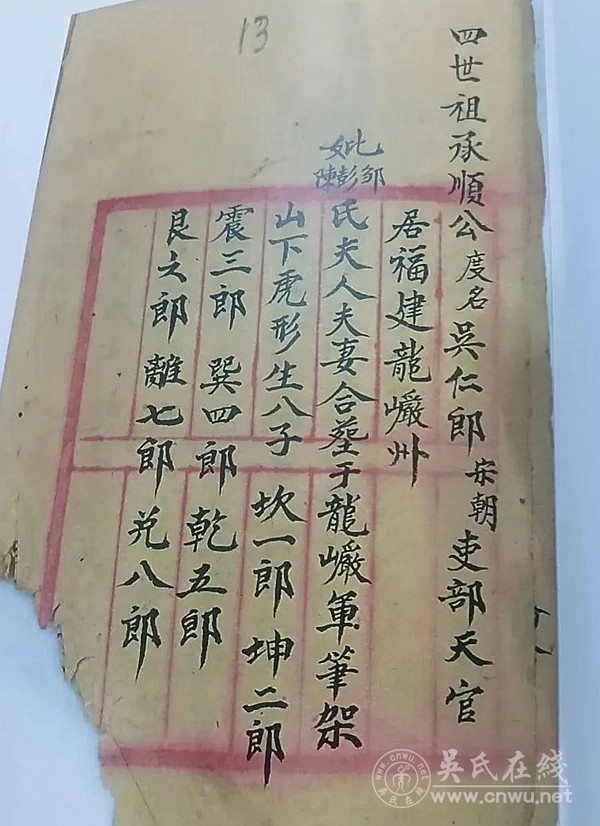 13
四世祖承順公度名吳仁郎宋朝吏部天官
居福建龍巖州
妣鄒彭陳氏夫人夫妻合葬于龍巖軍筆架
山下虎形生八子 坎一郎 坤二郎
震三郎 巽四郎 乾五郎
艮六郎 離七郎 兌八郎
吳氏在綫
www.cnwu.net